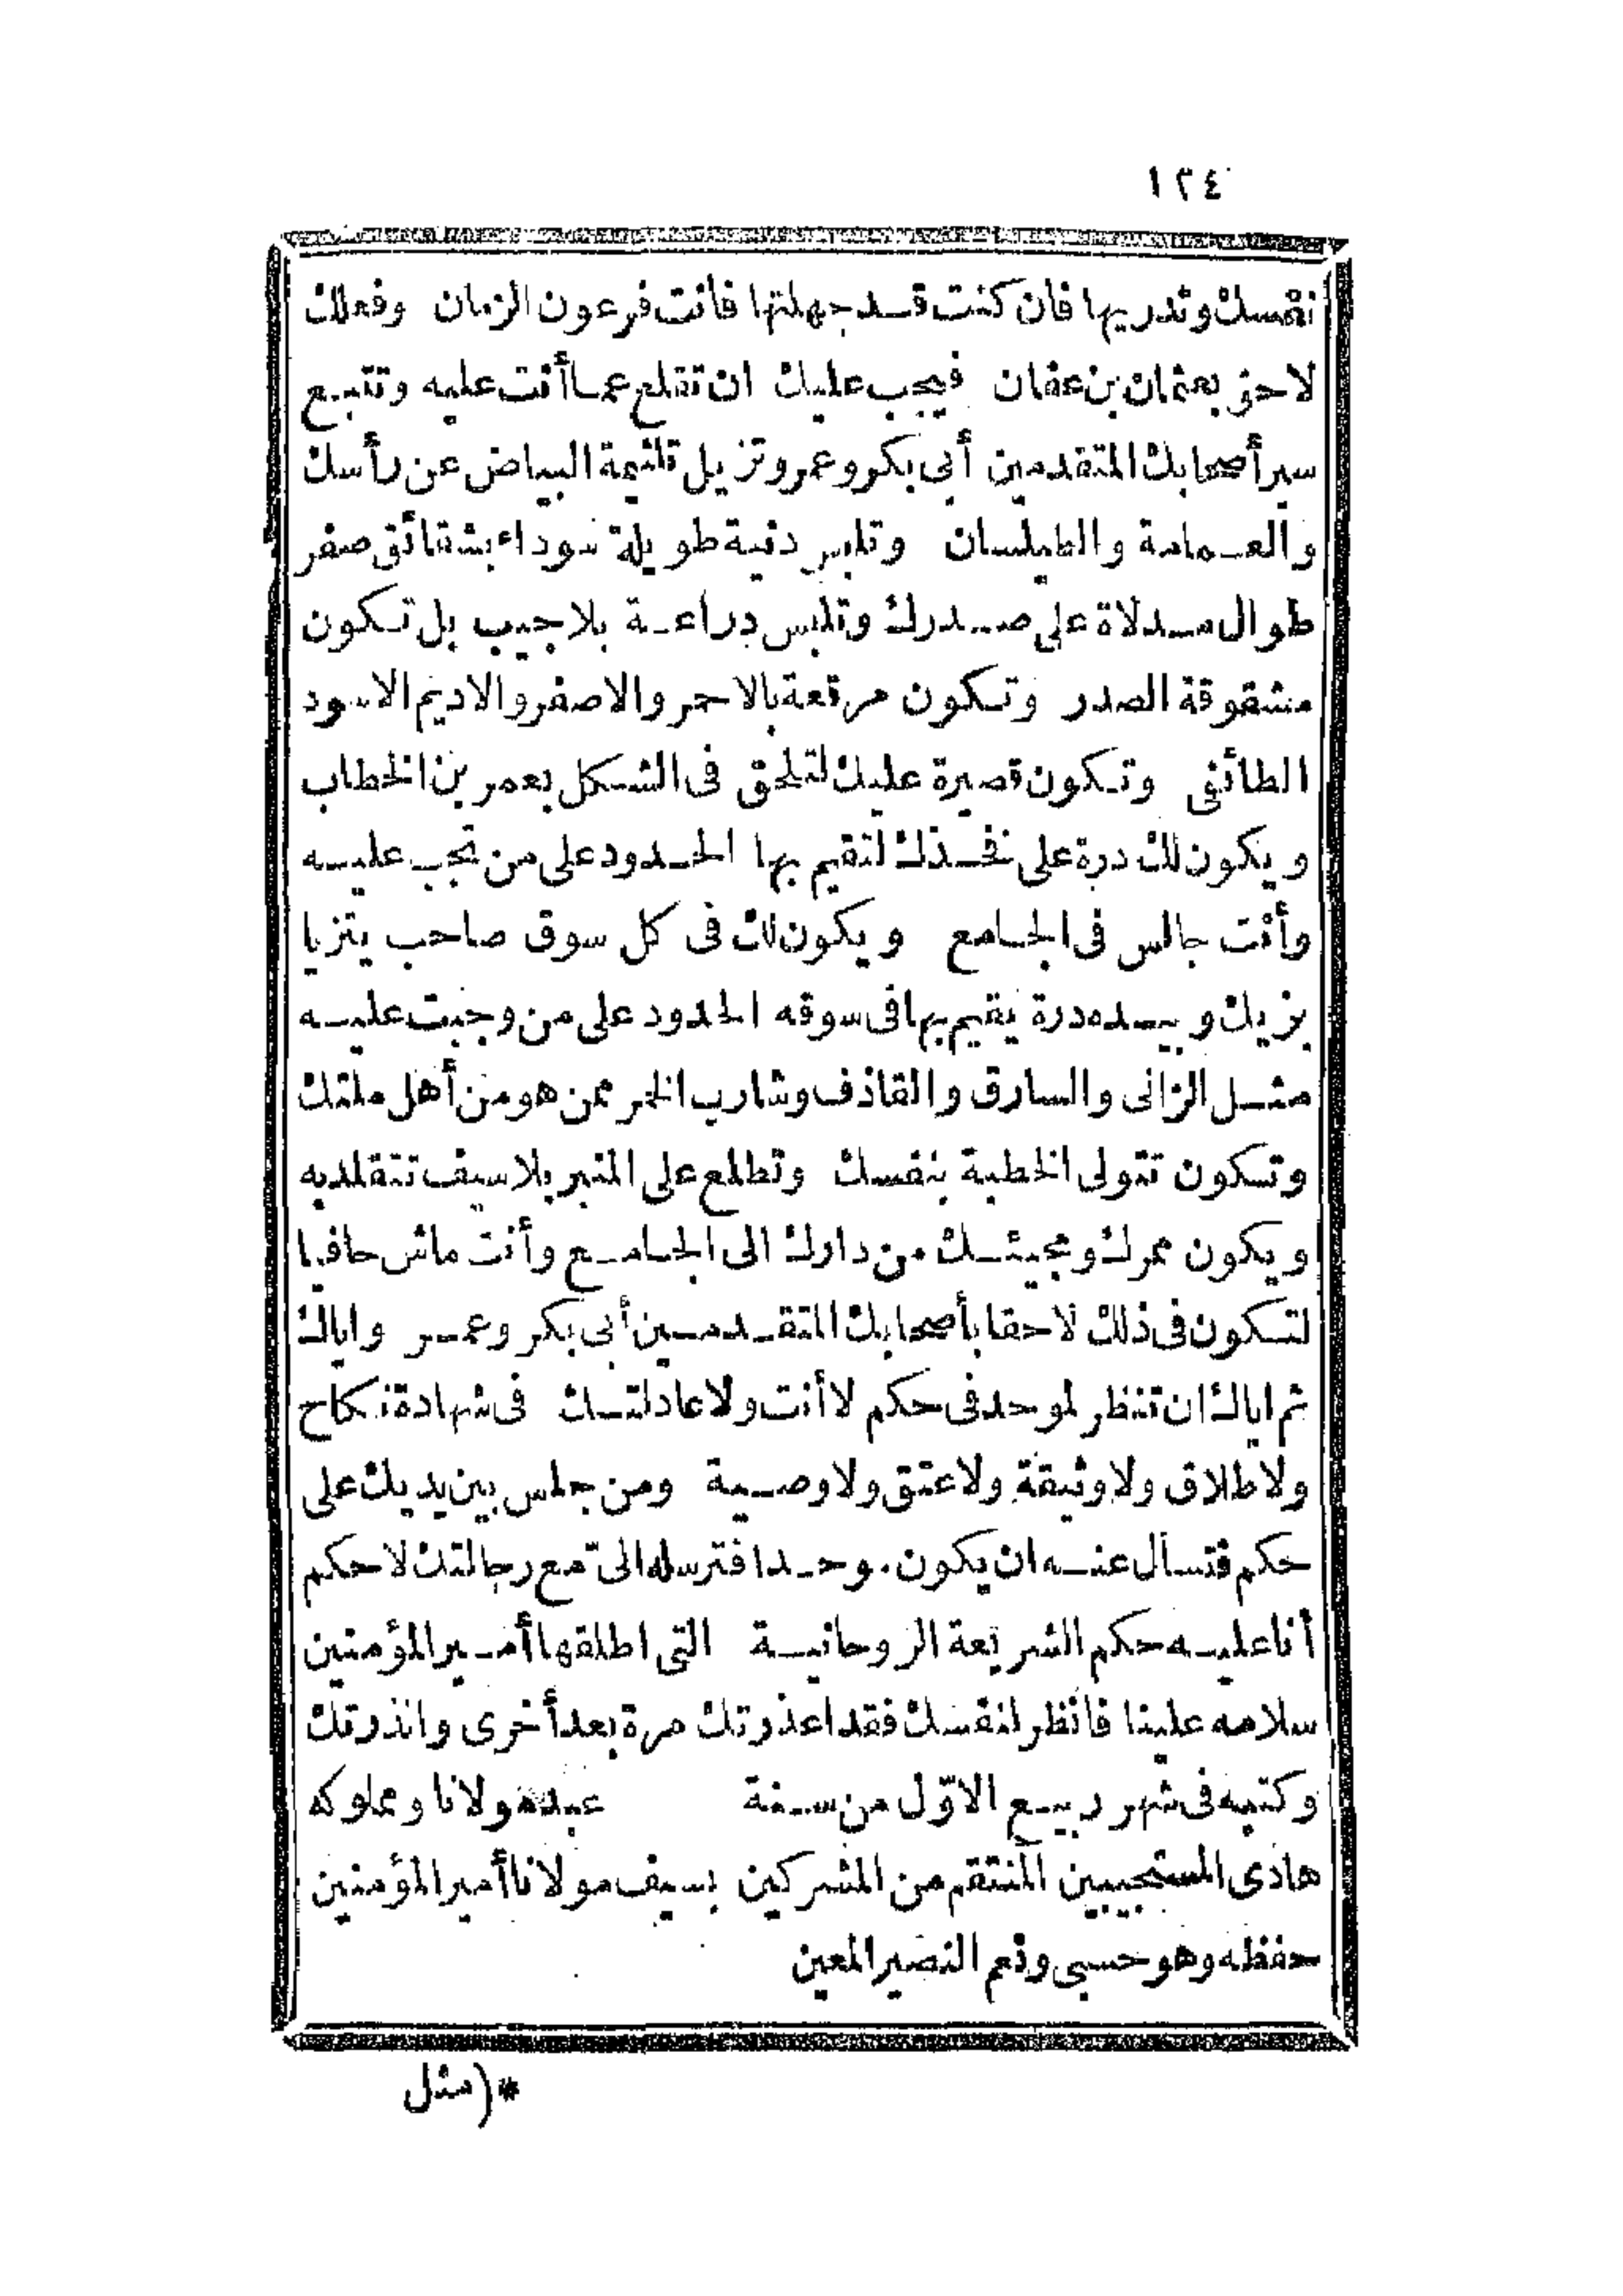 ١٣٤
نفسك وتدريها فان كنت قد جهلتها فانت فرعون الزمان وفعلك
لاحق بعثمان بن عفان فيجب عليك ان تقلع عما أنت عليه وتتبع
سير أصحابك المتقدمين أبى بكر وعمر وتزيل تلثيمة البياض عن رأسك
والعمامة والطيلسان وتلبس دنية طويلة سوداء بشقائق صفر
طوال مدلاة على صدرك وتلبس دراعة بلا جيب بل تكون
مشقوقة الصدر وتكون مرقعة بالاحمر والاصفر والاديم الاسود
الطائفى وتكون قصيرة عليك لتلحق فى الشكل بعمر بن الخطاب
ويكون لك درة على فخذك لتقيم بها الحدود على من تجب عليه
وأنت جالس فى الجامع ويكون لك فى كل سوق صاحب يتزيا
بزيك وبيده درة يقيم بها فى سوقه الحدود على من وجبت عليه
مثل الزانى والسارق والقاذف وشارب الخمر ممن هو من أهل ملتك
وتكون تتولى الخطبة بنفسك وتطلع على المنبر بلا سيف تتقلد به
ويكون ممرك ومجيئك من دارك الى الجامع وأنت ماش حافيا
لتكون فى ذلك لاحقا بأصحابك المتقدمين أبى بكر وعمر واياك
ثم اياك ان تنظر لموحد فى حكم لا أنت ولا عادلتك فى شهادة نكاح
ولا طلاق ولا وثيقة ولا عتق ولا وصية ومن جلس بين يديك على
حكم فتسأل عنه ان يكون موحدا فترسله الى تمع رجالتك لاحكم
أنا عليه حكم الشريعة الروحانية التى اطلقها أمير المؤمنين
سلامه علينا فانظر لنفسك فقد اعذرتك مرة بعد أخرى وانذرتك
وكتبه فى شهر ربيع الاوّل من سنة عبده مولانا ومملوكه
هادى المستجيبين المنتقم من المشركين بسيف مولانا أمير المؤمنين
حفظه وهو حسبى ونعم النصير المعين
*(مثل